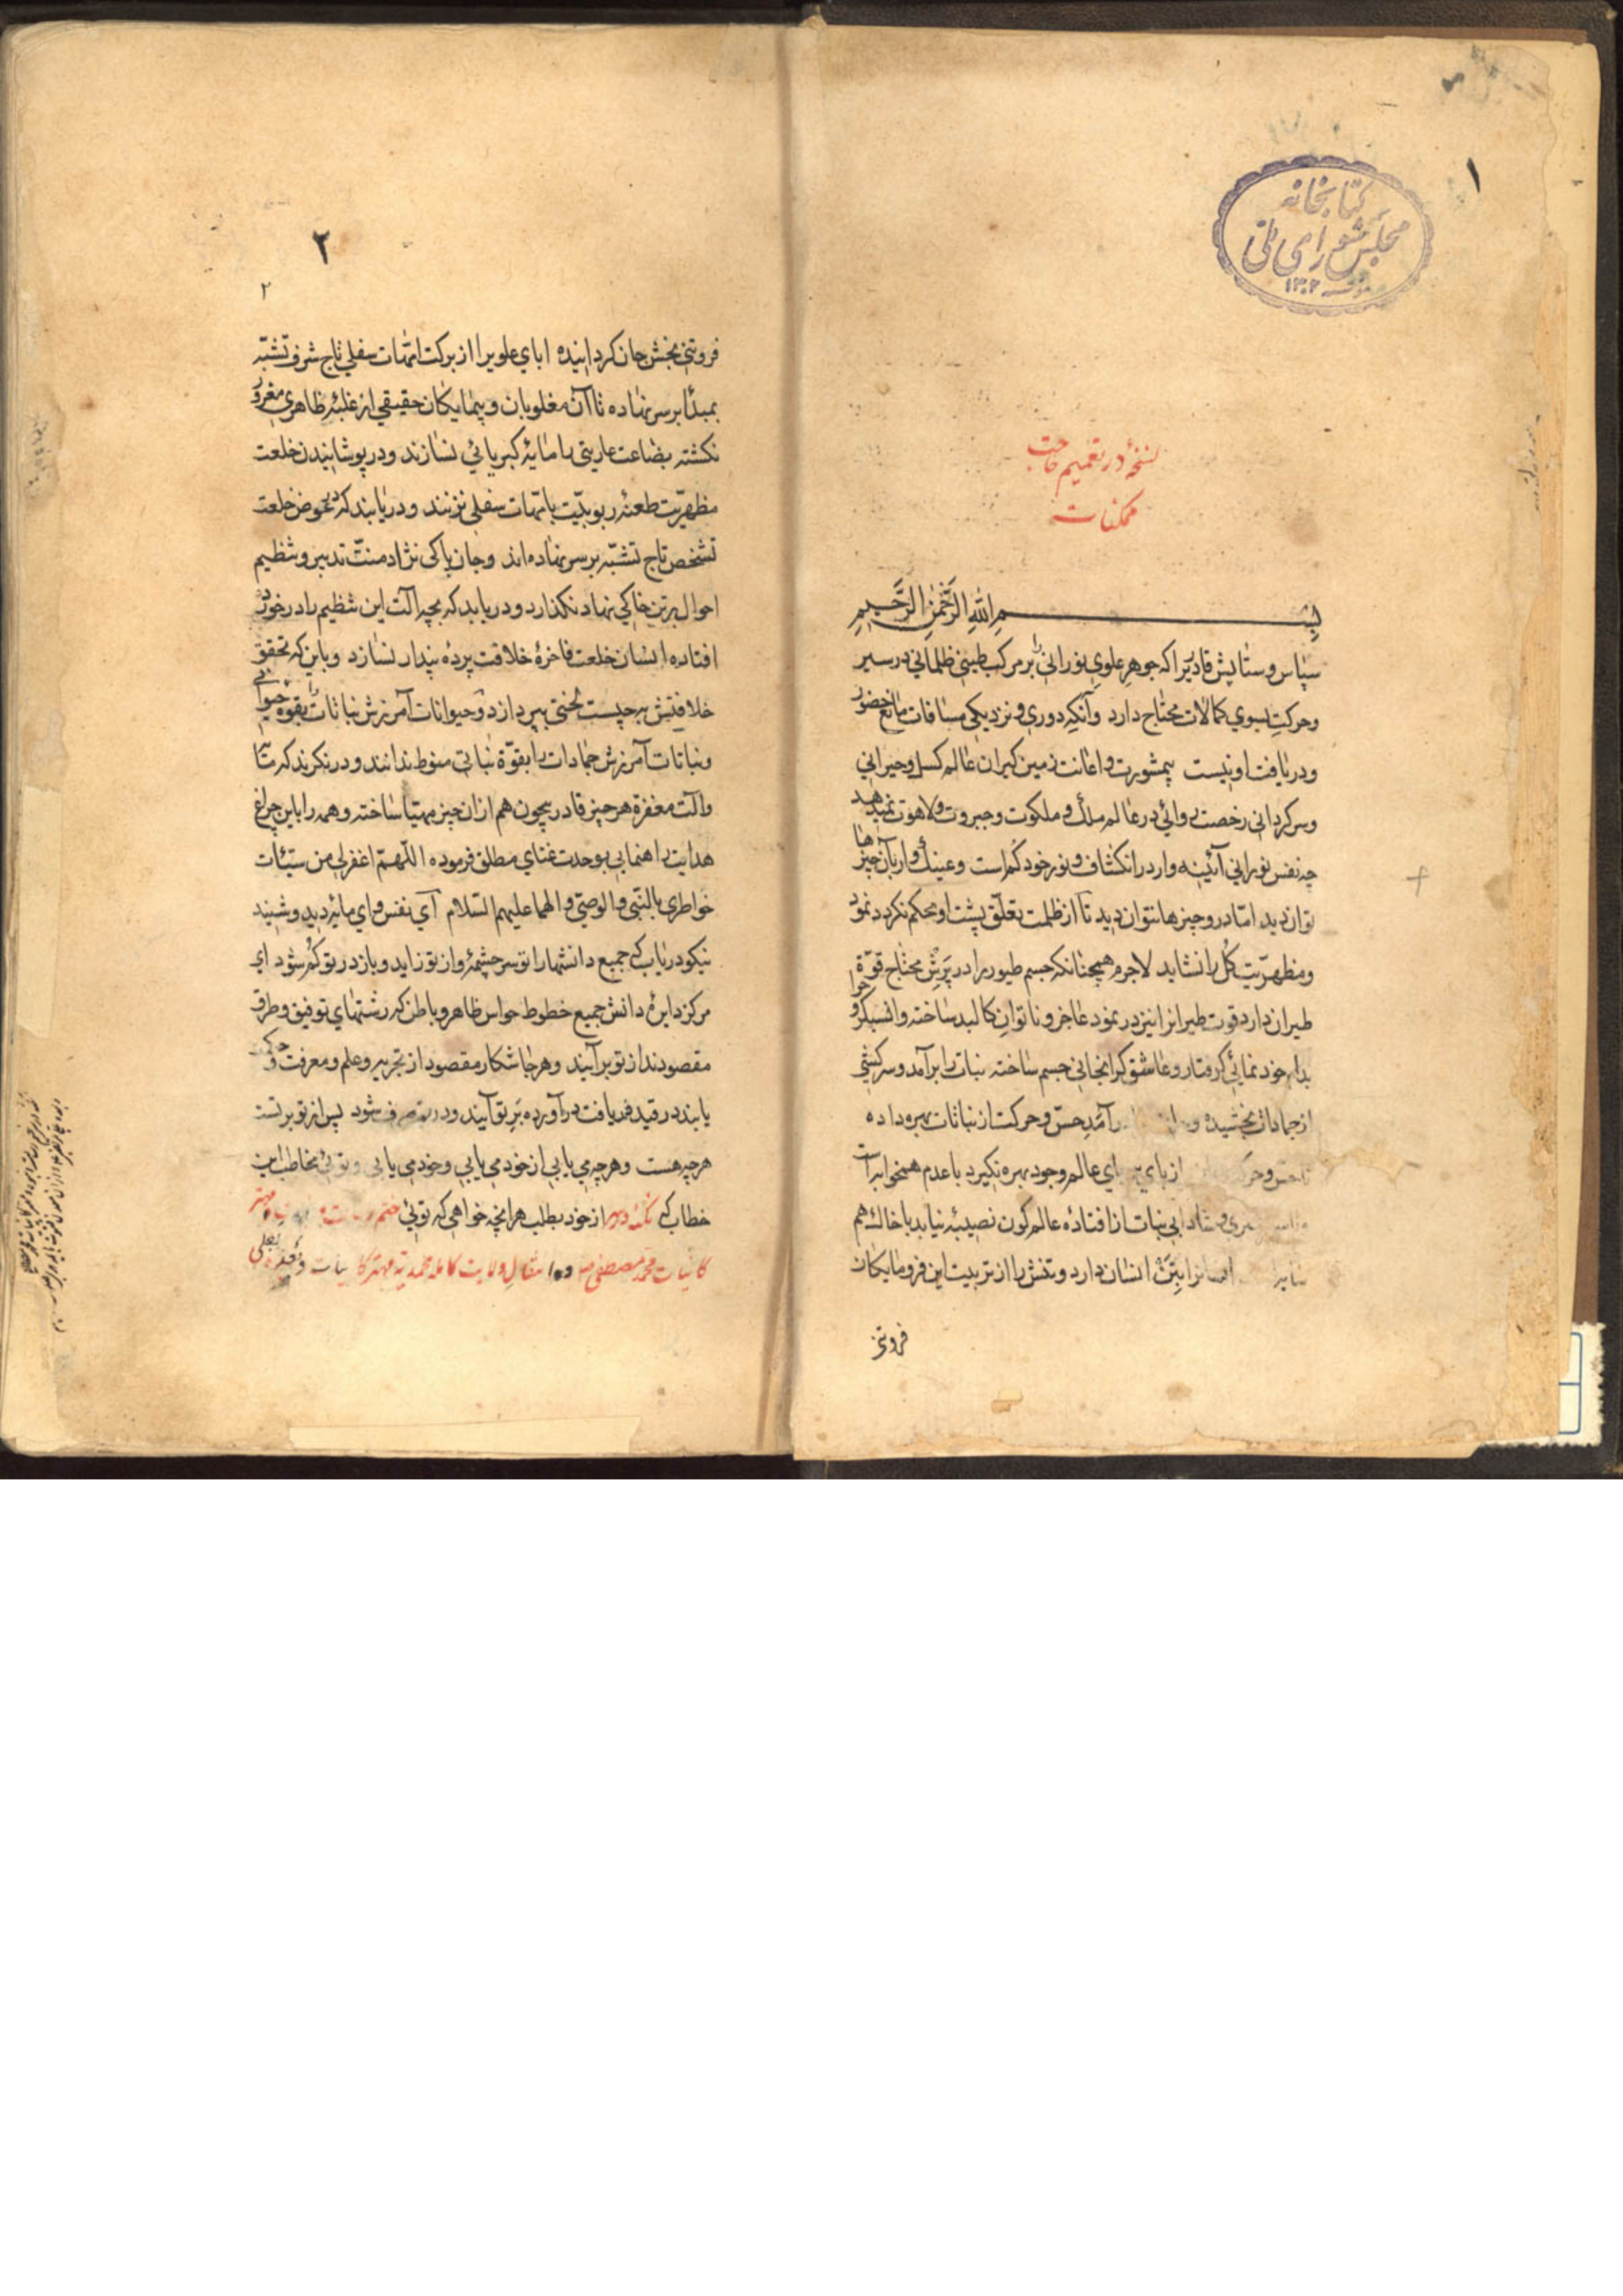 ۱
کتابخانه
مجلس شورای ملی
۱۳۰۲
نسخهٔ در تعمیم حاجت
ممکنات
بسم الله الرحمن الرحیم
سپاس و ستایش قادریرا که جوهر علوی نورانی را بر مرکب طینی ظلمانی در سیر
و حرکت بسوی کمالات محتاج دارد و آنکه دوری و نزدیکی مسافات مانع حضور
و دریافت او نیست بیمشورت و اعانت زمین کیران عالم کسل و حیرانی
و سرکردانی رخصت روائی در عالم ملک و ملکوت و جبروت و لاهوت نمیدهد
چه نفس نورانی آئینه وار در انکشاف و نور خود کم است و عینک وار بآن چیزها
توان دید اما در و چیزها نتوان دید تا از ظلمت تعلق پشت او محکم نکردد نمود
و مظهریت کل را نشاید لاجرم همچنانکه جسم طیور را در پرش محتاج قوّة
طیران دارد قوت طیرانرا نیز در نمود عاجز و ناتوان کالبد ساخته و انسکرو
بدام خود نمائی کرفتار و عاشق کرانجانی جسم ساخته نبات را برآمد و سرکشی
از جمادات بخشیده و برآمد حس و حرکت از نباتات بهره داده
تا حس و حرکت از بای عالم وجود بهره نکیرد با عدم همخوابه است
و شادابی نبات از افتاده عالم کون نصیبهٔ نیابد با خاک هم
انسانرا بتن انسان دارد و تنش را از تربیت این فرومایکان
فروتنی
۲
۲
فروتنی بخش جان کردانیده ابای علویرا از برکت امّهات سفلی تاج شرف تشبّه
بمبدأ بر سر نهاده تا آن مغلوبان و بیمایکان حقیقی از غلبهٔ ظاهری مغرور
نکشته بضاعت عاریتی را مایهٔ کبریائی نسازند و در پوشانیدن خلعت
مظهریّت طعنهٔ ربوبیّت بامّهات سفلی نزنند و دریابند که بعوض خلعت
تشخص تاج تشبّه بر سر نهاده اند و جان پاکی نژاد منّت تدبیر و تنظیم
احوال بر تن خاکی نهاد نکذارد و دریابد که بچه آلت این تنظیم را در خود
افتاده انسان خلعت فاخرهٔ خلافت پردهٔ پندار نسازد و باین که تحقق
خلافتش بر چیست لختی بپردازد و حیوانات آمرزش نباتات را بقوه حیوانی
و نباتات آمرزش جمادات را بقوّة نباتی منوط ندانند و در نکرند که متا
و آلت مغفرة هر چیز قادر بیچون هم ازان چیز مهیّا ساخته و همه را باین چراغ
هدایت راهنمایی بوحدت غنای مطلق فرموده اللّهمّ اغفرلی من سیّئات
خواطری بالنبی و الوصی و الهما علیهم السّلام ای نفس وای مایهٔ دید و شنید
نیکو دریاب که جمیع دانشها را تو سرچشمهٔ و از تو زاید و باز در تو کم شود ای
مرکز دایرهٔ دانش جمیع خطوط حواس ظاهر و باطن که رشتهای توفیق و طرق
مقصودند از تو برآیند و هر جا شکار مقصود از تجربه و علم و معرفت و حکمت
یابند در قید دریافت درآورده بر تو آیند و در تو صرف شود پس از تو بر تست
هر چه هست و هر چه می یابی از خود می یابی و خود می یابی و توئی مخاطب این
خطاب که از خود بطلب هرانچه خواهی که توئی ختم رسالت مهتر
کائنات محمّد مصطفی ص ولایت کامله محمدیّه مهتر کاینات